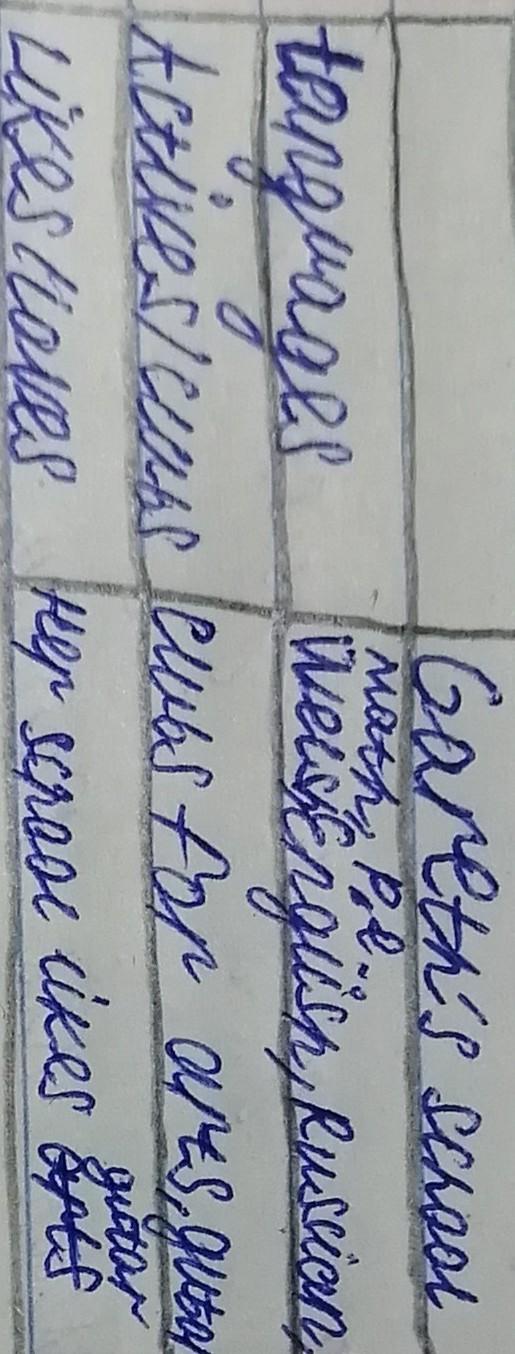 Gareth's school
Languages
math, P.E.
Welsh, English, Russian,
Actives/clubs
clubs for arts, guitar
Likes/loves
Her school likes guitar